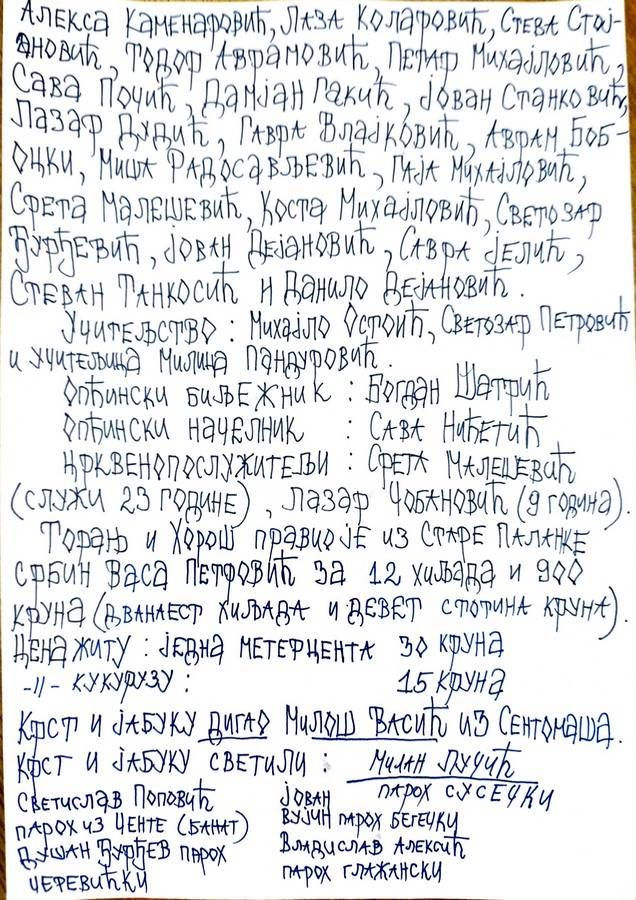 Алекса Каменаровић, Лаза Коларовић, Стева Стој-
ановић, Тодор Аврамовић, Петар Михајловић,
Сава Почић, Дамјан Гакић, Јован Станковић,
Лазар Дудић, Гавра Влајковић, Аврам Боб-
оцки, Миша Радосављевић, Гаја Михајловић,
Срета Малешевић, Коста Михајловић, Светозар
Ђурђевић, Јован Дејановић, Савра Јелић,
Стеван Танкосић и Данило Дејановић.
Учитељство: Михајло Остоић, Светозар Петровић
и учитељица Милица Пандуровић.
Опћински биљежник: Богдан Шатрић
Опћински начелник : Сава Нићетић
Црквенопослужитељи: Срета Малешевић
(служи 23 године), Лазар Чобановић (9 година).
Торањ и Хорош правио је из Старе Паланке
Србин Васа Петровић за 12 хиљада и 900
круна (дванаест хиљада и девет стотина круна).
Цена житу: једна метерцента 30 круна
-||- кукурузу: 15 круна
Крст и јабуку дигао Милош Васић из Сентомаша.
Крст и јабуку светили: Милан Лучић
парох сусечки
Светислав Поповић
парох из Ченте (Банат)
Душан Ђурђев парох
черевићки
Јован
Вујчин парох бегечки
Владислав Алексић
парох гложански